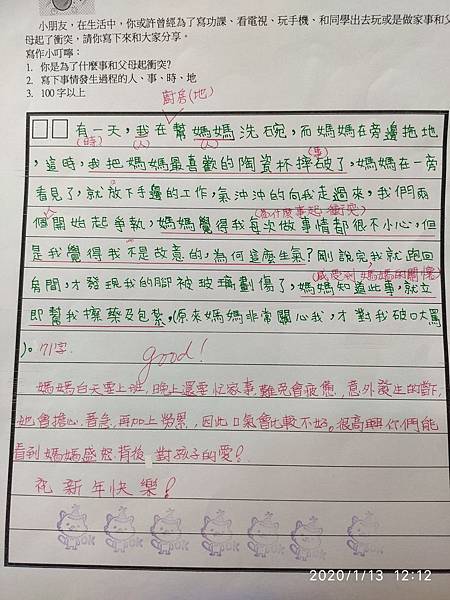 小朋友，在生活中，你或許曾經為了寫功課、看電視、玩手機、和同學出去玩或是做家事和父
母起了衝突，請你寫下來和大家分享。
寫作小叮嚀：
1. 你是為了什麼事和父母起衝突?
2. 寫下事情發生過程的人、事、時、地
3. 100字以上
廚房(地)
□□有一天，我在幫媽媽洗碗，而媽媽在旁邊拖地
(時) (人) (人) (事)
，這時，我把媽媽最喜歡的陶瓷杯摔破了，媽媽在一旁
看見了，就放下手邊的工作，氣沖沖的向我走過來，我們兩
(為什麼事起衝突)
個開始起爭執，媽媽覺得我每次做事情都很不小心，但
是我覺得我不是故意的，為何這麼生氣?剛說完我就跑回
(感受到媽媽的關懷)
房間，才發現我的腳被玻璃劃傷了，媽媽知道此事，就立
即幫我擦藥及包紮，(原來媽媽非常關心我，才對我破口大罵
)。71字
good!
媽媽白天要上班，晚上還要忙家事，難免會疲憊，意外發生的當下，
她會擔心、著急，再加上勞累，因此口氣會比較不好。很高興你們能
看到媽媽盛怒背後對孩子的愛?
祝新年快樂!
OK OK OK OK OK OK OK
2020/1/13 12:12